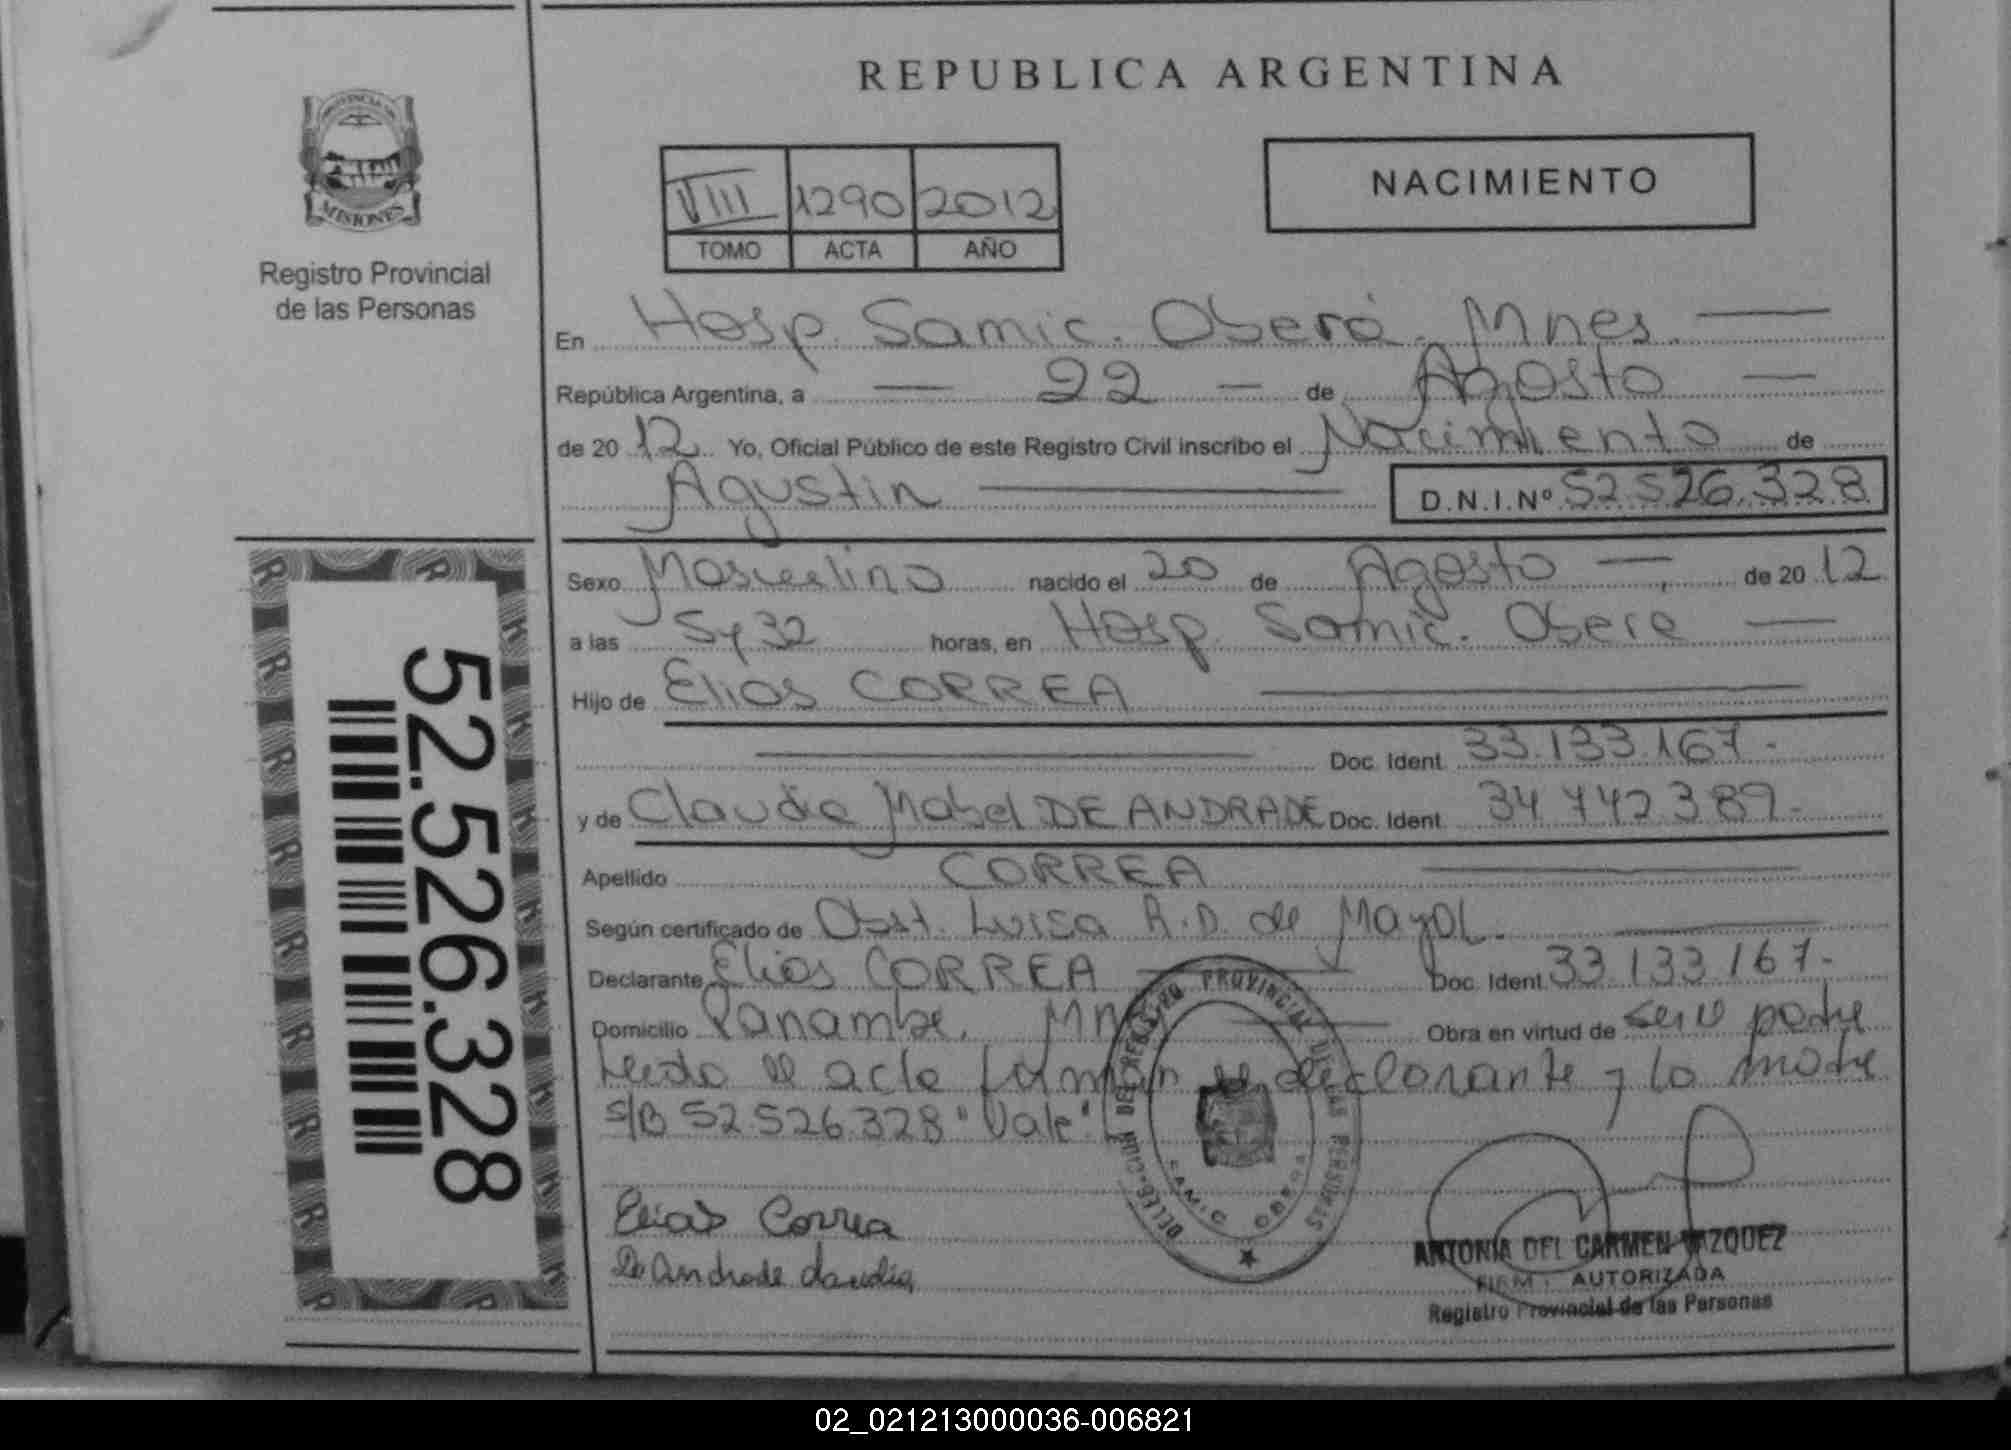 REPUBLICA ARGENTINA
PROVINCIA DE
MISIONES
Registro Provincial
de las Personas
VIII 1290 2012
TOMO ACTA AÑO
NACIMIENTO
En Hosp. Samic. Oberá. Mnes.
República Argentina, a 22 de Agosto
de 2012 Yo, Oficial Público de este Registro Civil inscribo el Nacimiento de
Agustin D.N.I.Nº 52.526.328
Sexo Masculino nacido el 20 de Agosto de 2012
a las 5 y 32 horas, en Hosp. Samic. Obera
Hijo de Elias CORREA
Doc. Ident. 33.133.167.-
y de Claudia Mabel DE ANDRADE Doc. Ident. 34.742.389.-
Apellido CORREA
Según certificado de Obst. Luisa R.D. de Mayol.
Declarante Elias CORREA Doc. Ident. 33.133.167.-
Domicilio Panambi, Mn Obra en virtud de ser padre
Leida el acta firman el declarante y la madre
S/B 52.526.328 "Vale"
Elias Correa
De Andrade Claudia
DELEGACION DEL REGISTRO PROVINCIAL DE LAS PERSONAS
SAMIC OBERA
ANTONIA DEL CARMEN VAZQUEZ
FIRMA AUTORIZADA
Registro Provincial de las Personas
52.526.328
02_021213000036-006821